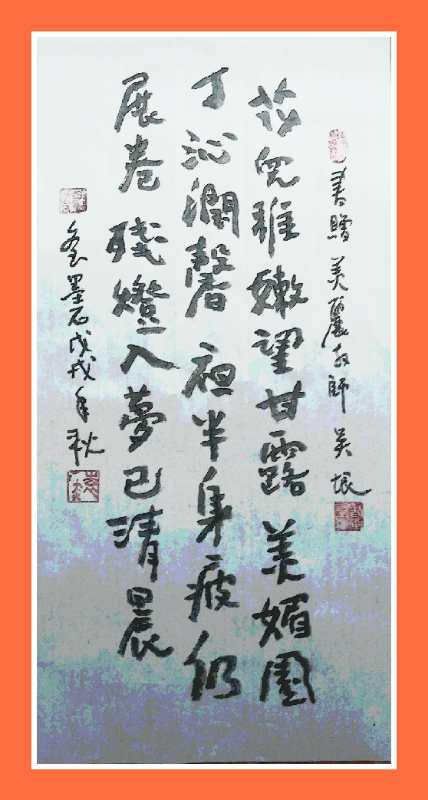 書贈 美麗 師 吴垠
花兒稚嫩望甘露 美媚園
丁沁潤馨 夜半身疲仍
展卷 殘燈入夢已清晨
墨石戊戌年秋